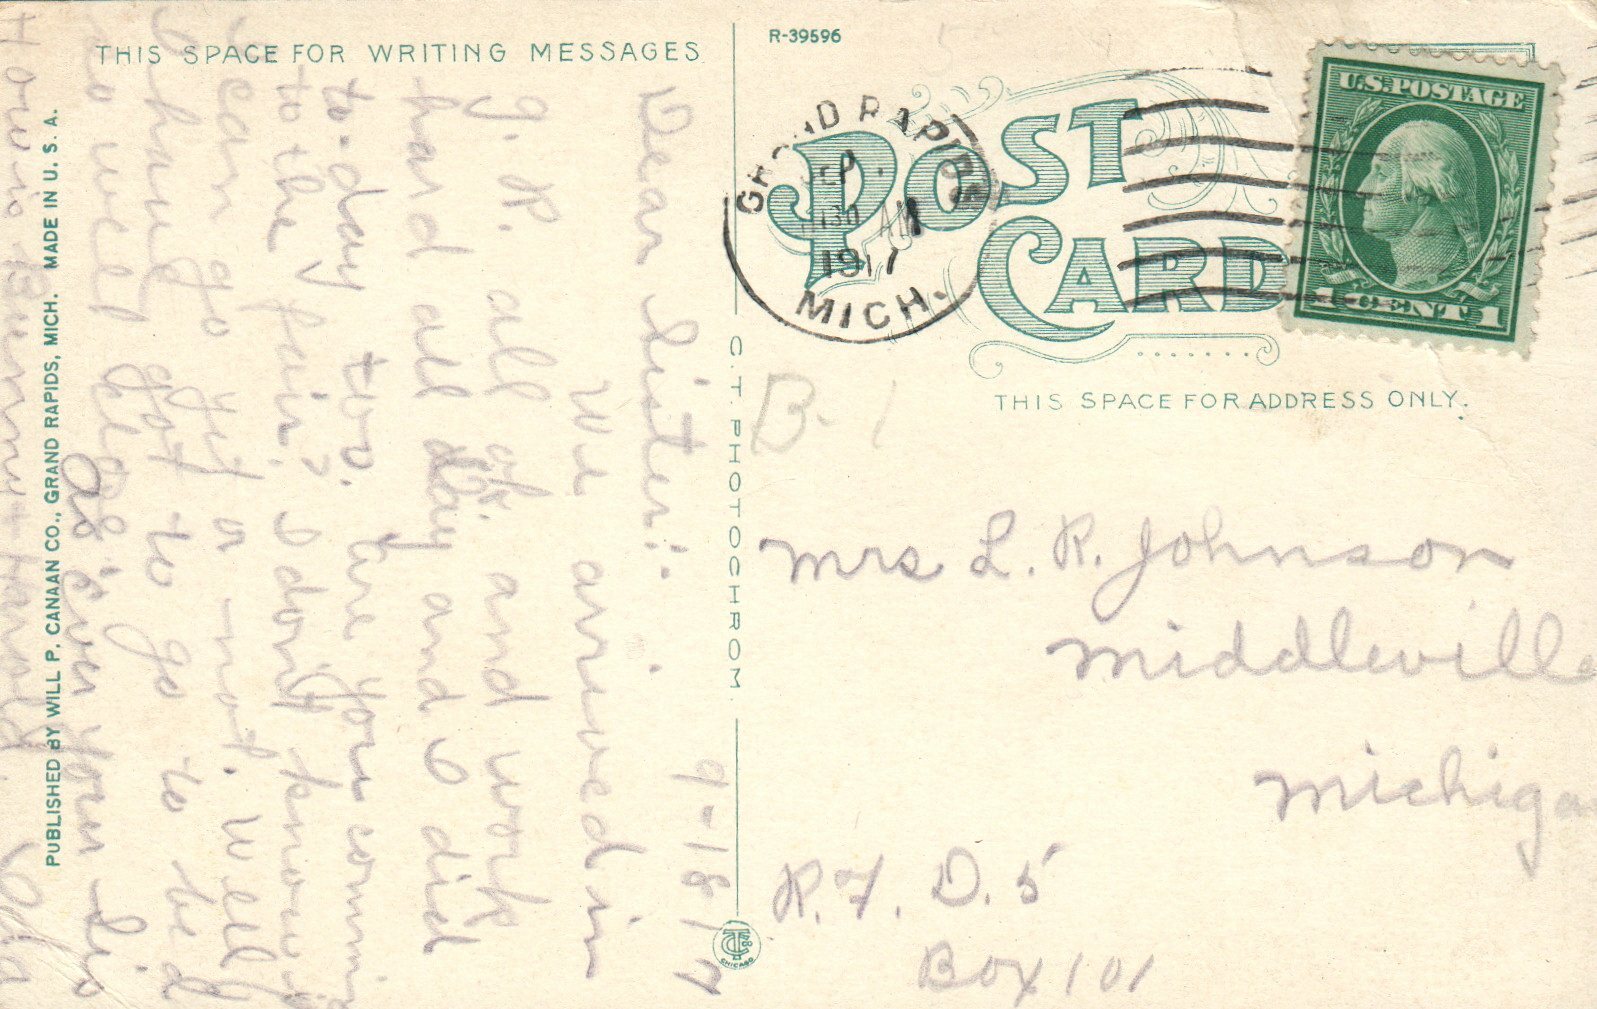 THIS SPACE FOR WRITING MESSAGES
9-18 17
Dear Sister:.
We arrived in
G. R. all ok. and work
hard all day and I did
to-day too. Are you coming
to the fair? I don't know if
I can go yet or not. Well
I have got to go to bed
so will close
As ever your Sis
Ada
Tommy Bunny + Harold
PUBLISHED BY WILL P. CANAAN CO., GRAND RAPIDS, MICH. MADE IN U. S. A.
C.T. PHOTOCHROM
CHICAGO
R-39596
POST
CARD
GRAND RAPIDS
SEP
1130 AM
1917
MICH.
U.S. POSTAGE
1 CENT 1
THIS SPACE FOR ADDRESS ONLY.
B-1
Mrs L. R. Johnson
Middleville
Michigan
R. F. D. 5
Box 101